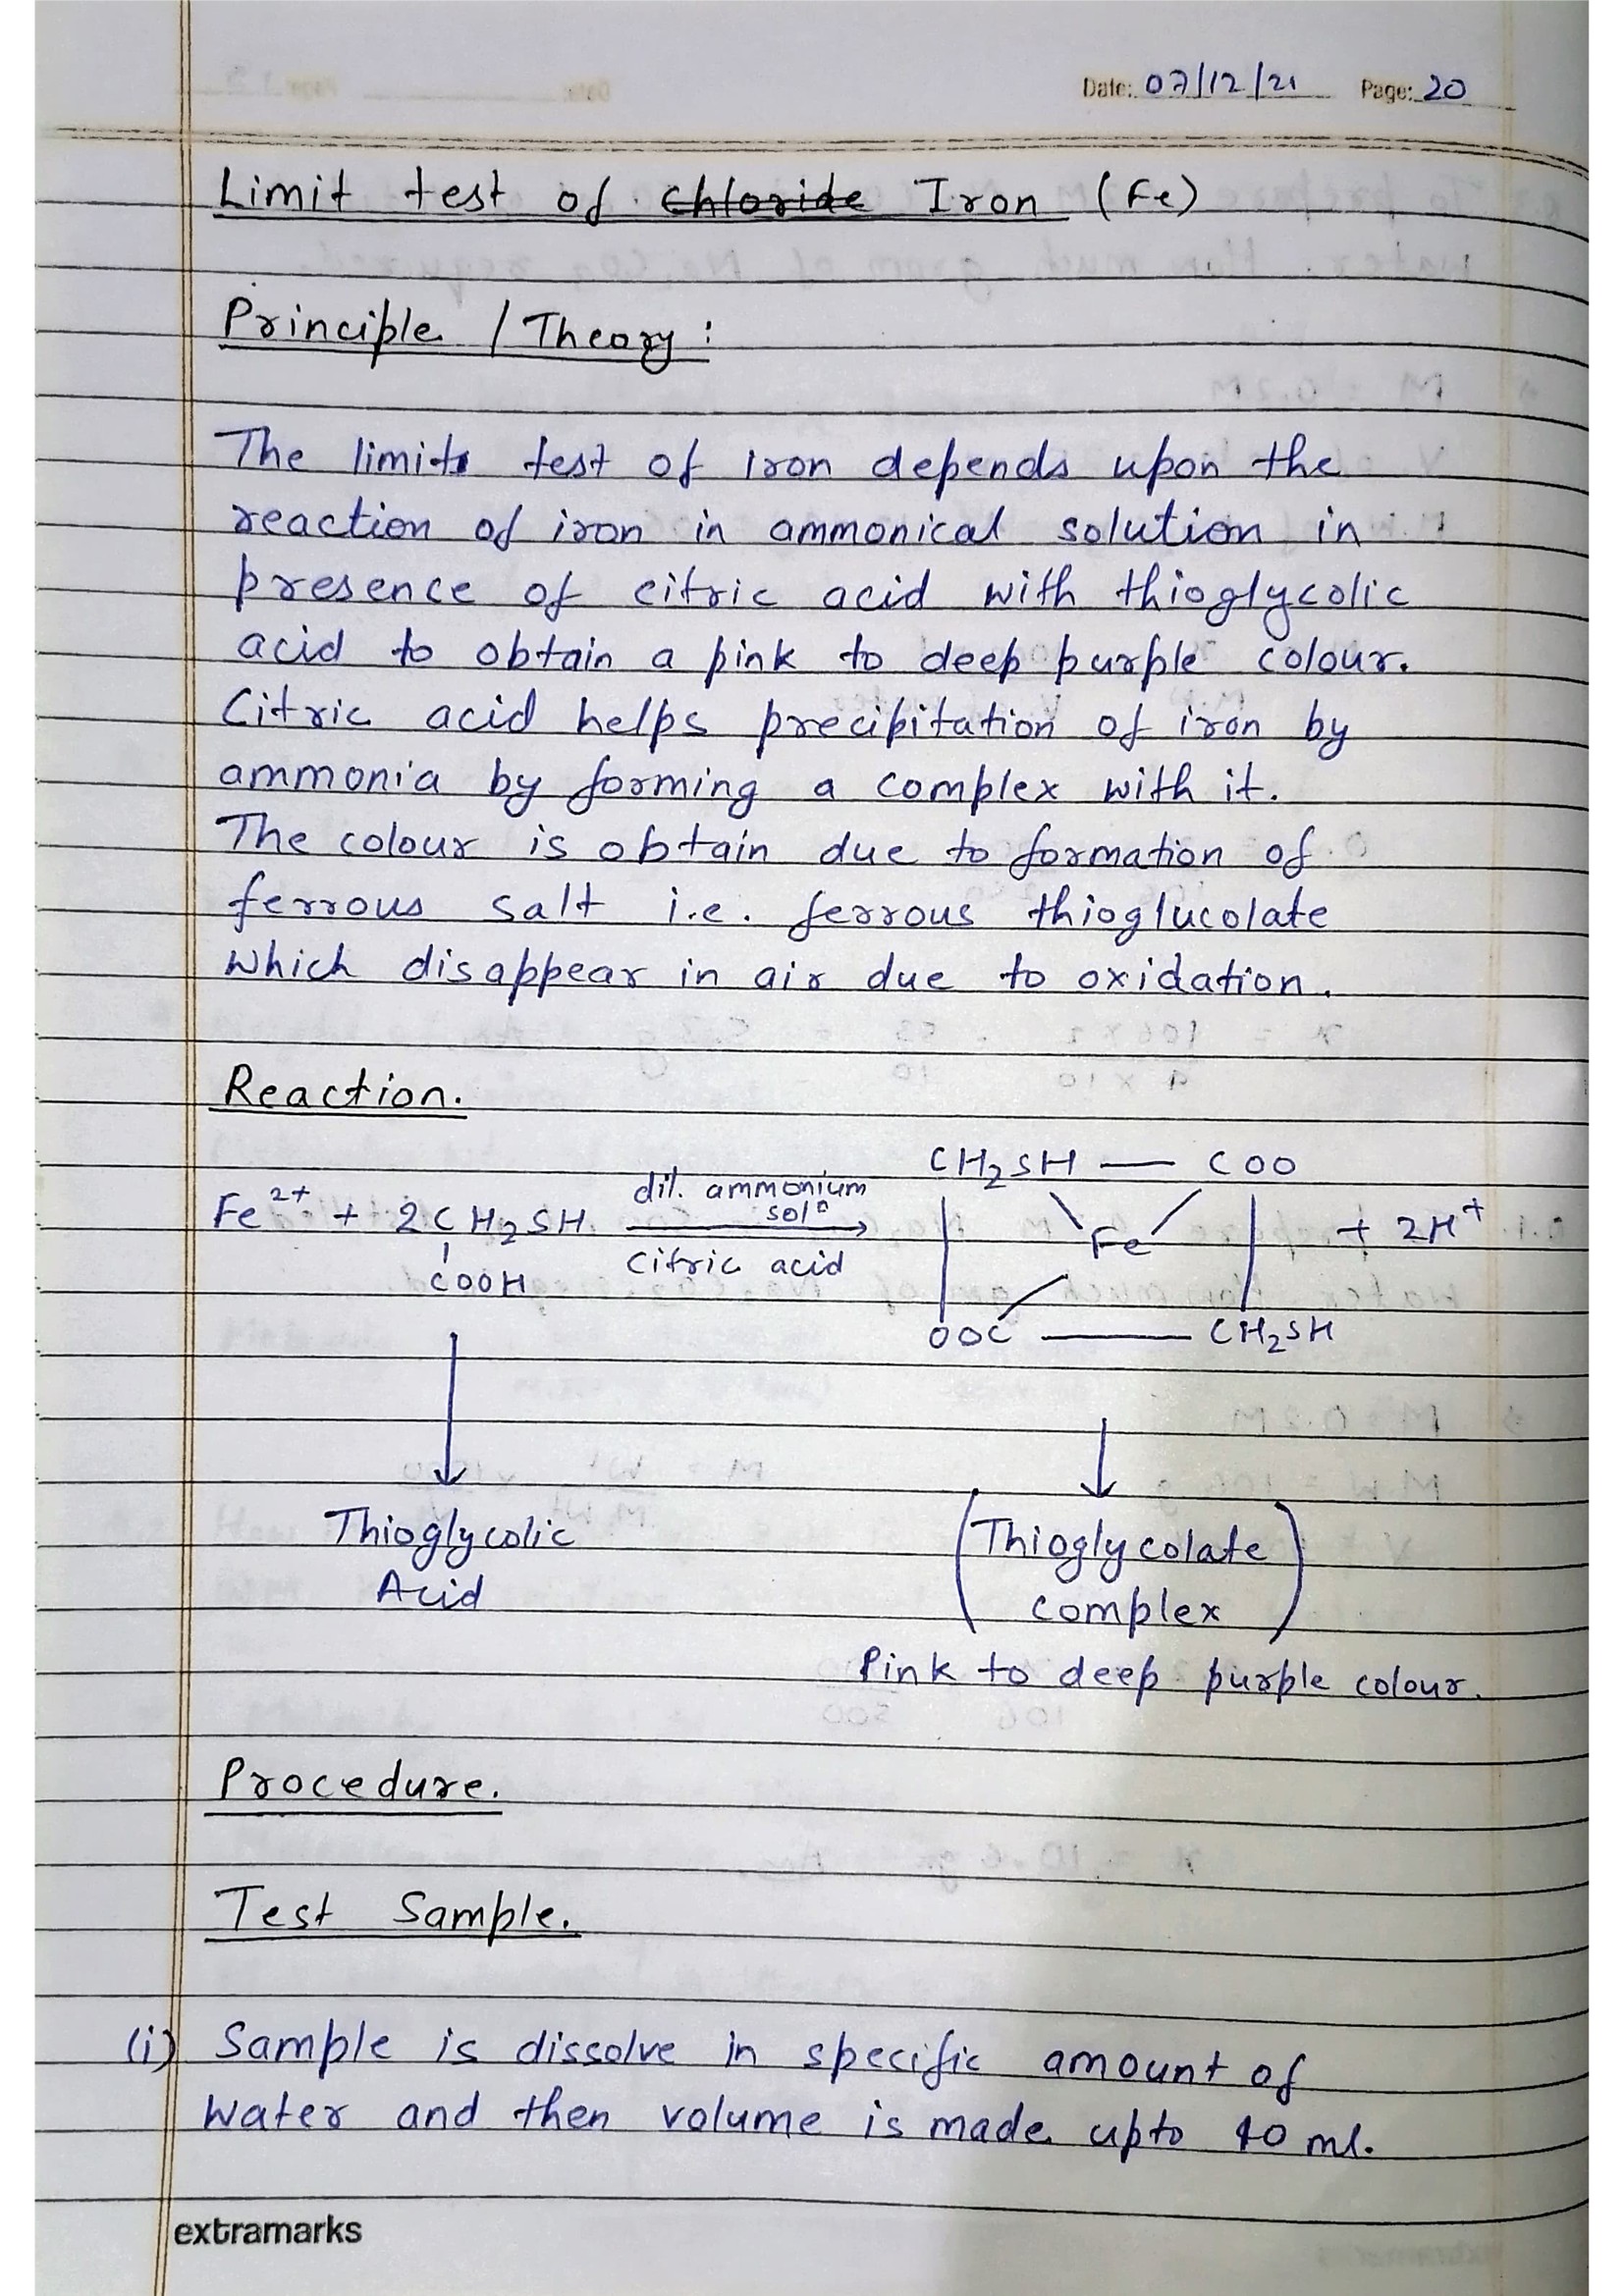 Date: 07/12/21 Page: 20
Limit test of chloride Iron (Fe)
Principle / Theory :
The limits test of iron depends upon the
reaction of iron in ammonical solution in
presence of citric acid with thioglycolic
acid to obtain a pink to deep purple colour.
Citric acid helps precipitation of iron by
ammonia by forming a complex with it.
The colour is obtain due to formation of
ferrous salt i.e. ferrous thioglucolate
which disappear in air due to oxidation.
Reaction.
CH₂SH — COO
Fe²⁺ + 2CH₂SH dil. ammonium solⁿ → Fe + 2H⁺
COOH citric acid
OOC — CH₂SH
Thioglycolic (Thioglycolate
Acid complex)
Pink to deep purple colour.
Procedure.
Test Sample.
(i) Sample is dissolve in specific amount of
water and then volume is made upto 40 ml.
extramarks